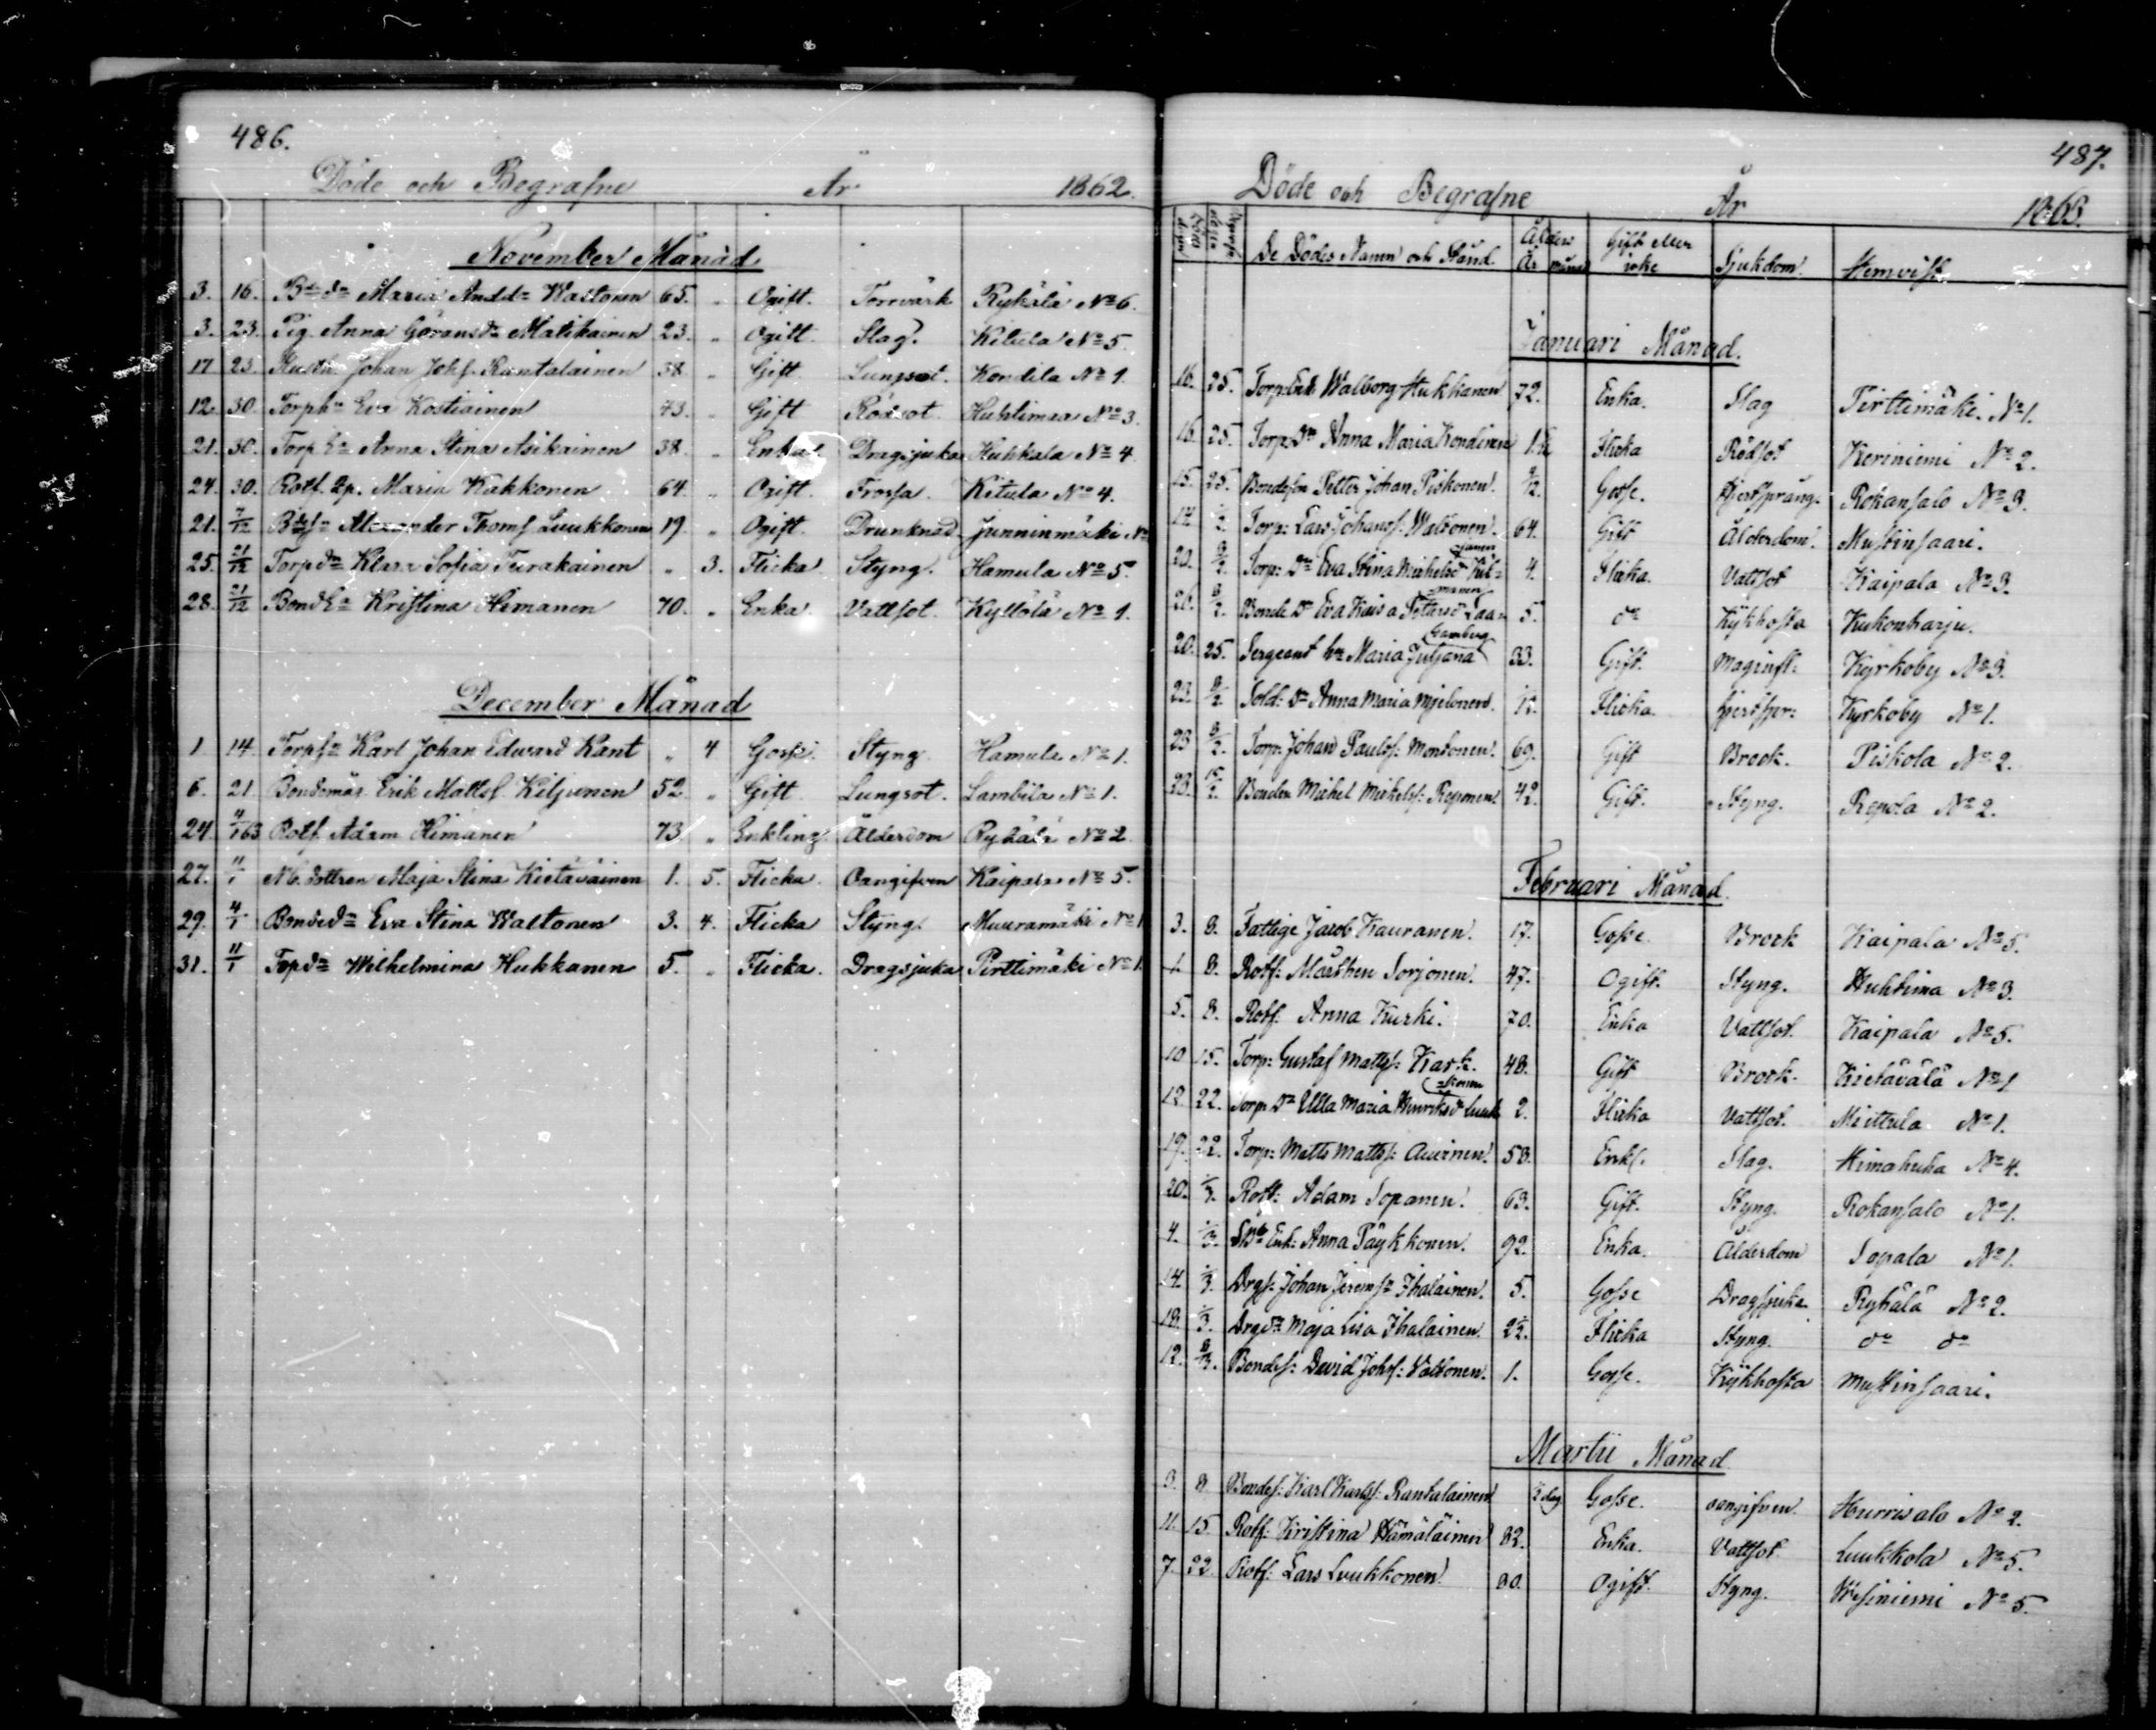 486.
Döde och Begrafne År 1862.
November Månad
3. 16. Bdedr Maria Andd:r Waltonen 65. " Ogift. Torrvärk Rykälä No 6.
3. 23. Pig. Anna Göransd:r Matikainen 23. " Ogift Slag. Kitula No 5.
17 23. Johan Johs. Rantalainen 38. " Gift. Lungsot. Kondila No 1.
12. 30. Torph:u Eva Kostiainen 73. " Gift Rödsot Huhtimaa No 3.
21. 30. Torp E:a Anna Stina Asikainen 38. " Enka Dragsjuka Huhkala No 4
24. 30. Rotf. Maria Kakkonen 64. " Ogift. Frossa. Kitula No 4.
21. 7/12 Alexander Thoms Luukkonen 19. " Ogift. Drunknad Junninmäki No
25. 21/12 Torp d:r Klara Sofia Turakainen " 3. Flicka Styng. Hamula No 5.
28. 21/12 Bond E:a Kristina Himanen 70. " Enka. Vattsot. Kyllölä No 1.
December Månad
1 14. Torps:n Karl Johan Edward Kant " 4 Gosse. Styng Hamula No 1.
6. 21. Bondemås. Erik Matts. Kiljunen 52 " Gift. Lungsot. Lambila No 1.
24. 4/1 63 Rotf. Adam Himanen 73. " Enkling Ålderdom Rykälä No 2
27. 11/1 Nb. dottren Maja Stina Kietäväinen 1. 5. Flicka. Oangifven Kaipala No 5.
29. 4/1 Bonded:r Eva Stina Waltonen 3. 4. Flicka Styng. Muuramäki No 1
31. 11/1 Topd:r Wilhelmina Hukkanen 5. " Flicka. Dragsjuka Pirttimäki No 1.
487.
Döde och Begrafne År 1863.
De Dödes Namn och Stånd. Ålder År månad Gift eller icke Sjukdom. Hemvist.
Januari Månad.
16. 25. Torp: Enk Walborg Hukkanen 72. Enka. Slag Pirttimäki. No 1.
16. 25. Torp: D:r Anna Maria Kondinen Flicka Rödsot Keriniemi No 2.
15. 25. Bondeson Petter Johan Piskonen. Gosse. Hjertsprång. Rokansalo No 3.
14. 1/2. Torp: Lars Johanss. Waltonen. 64. Gift Ålderdom. Mustinsaari.
20. 8/2. Torp: D:r Eva Stina Mickelsd:r Kil= junen 4. Flicka. Vattsot Kaipala No 3.
20. 8/2. Bonde D:r Eva Kaisa Pettersd:r Laa= manen 5. d:o Kykhosta Kukonharju.
20. 25. Sergeant h:u Maria Juljana 33. Gift. Maginfl: Kyrkoby No 3.
22. 8/2. Sold: D:r Anna Maria Mielonen. Flicka. Hjertspr: Kyrkoby No 1.
23 8/2. Torp: Johan Paulss: Montonen. 69. Gift Brock. Piskola No 2.
23. 15/2. Bonden Mickel Mickelss: Reponen 42. Gift. Styng. Repola No 2.
Februari Månad.
3. 8. Fattige Jacob Kauranen. 17. Gosse. Brock Kaipala No 5.
1. 8. Rotf: Mårthen Sorjonen. 47. Ogift. Styng. Huhtima No 3.
5. 8. Rotf: Anna Kurki. 70. Enka Vattsot. Kaipala No 5.
10 15. Torp: Gustaf Mattss: Kark. 48. Gift Brock. Kietävälä No 1
12 22. Torp: D:r Ulla Maria Hinriksd:r Luuk =konen 2. Flicka Vattsot. Miettula No 1.
19. 22. Torp: Matts Mattss: Auvinen. 58. Enkl. Slag. Himahuha No 4.
20. 1/3. Rotf: Adam Sopanen. 63. Gift. Styng. Rokansalo No 1.
4. 1/3. Enk: Anna Paykkonen. 92. Enka. Ålderdom Sopala No 1.
14. 1/3. Drgs: Johan Jeremss:n Ihalainen. 5. Gosse Dragsjuka. Rykälä No 2.
18. 1/3. Drgd:r Maja Lisa Ihalainen. 2½. Flicka Styng. d:o d:o
12. 8/3. Bondes: David Johss: Waltonen. 1. Gosse. Kykhosta Mustinsaari.
Martii Månad
3. 8 Bondes: Karl Karlss: Rantalainen dag Gosse. oangifven. Hurrisalo No 2.
11. 15 Rotf: Kristina Hämäläinen 82. Enka. Vattsot Luukkola No 5.
7. 22 Rotf: Lars Luukkonen 80. Ogift. Styng. No 5.